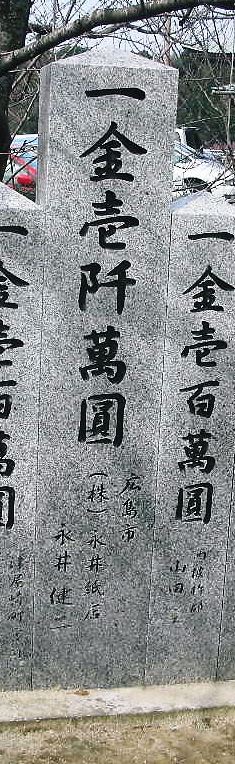 一金壱阡萬圓
広島市
(株)永井紙店
永井健二
一金壱百萬圓
山田
一金壱百萬圓
津屋崎町